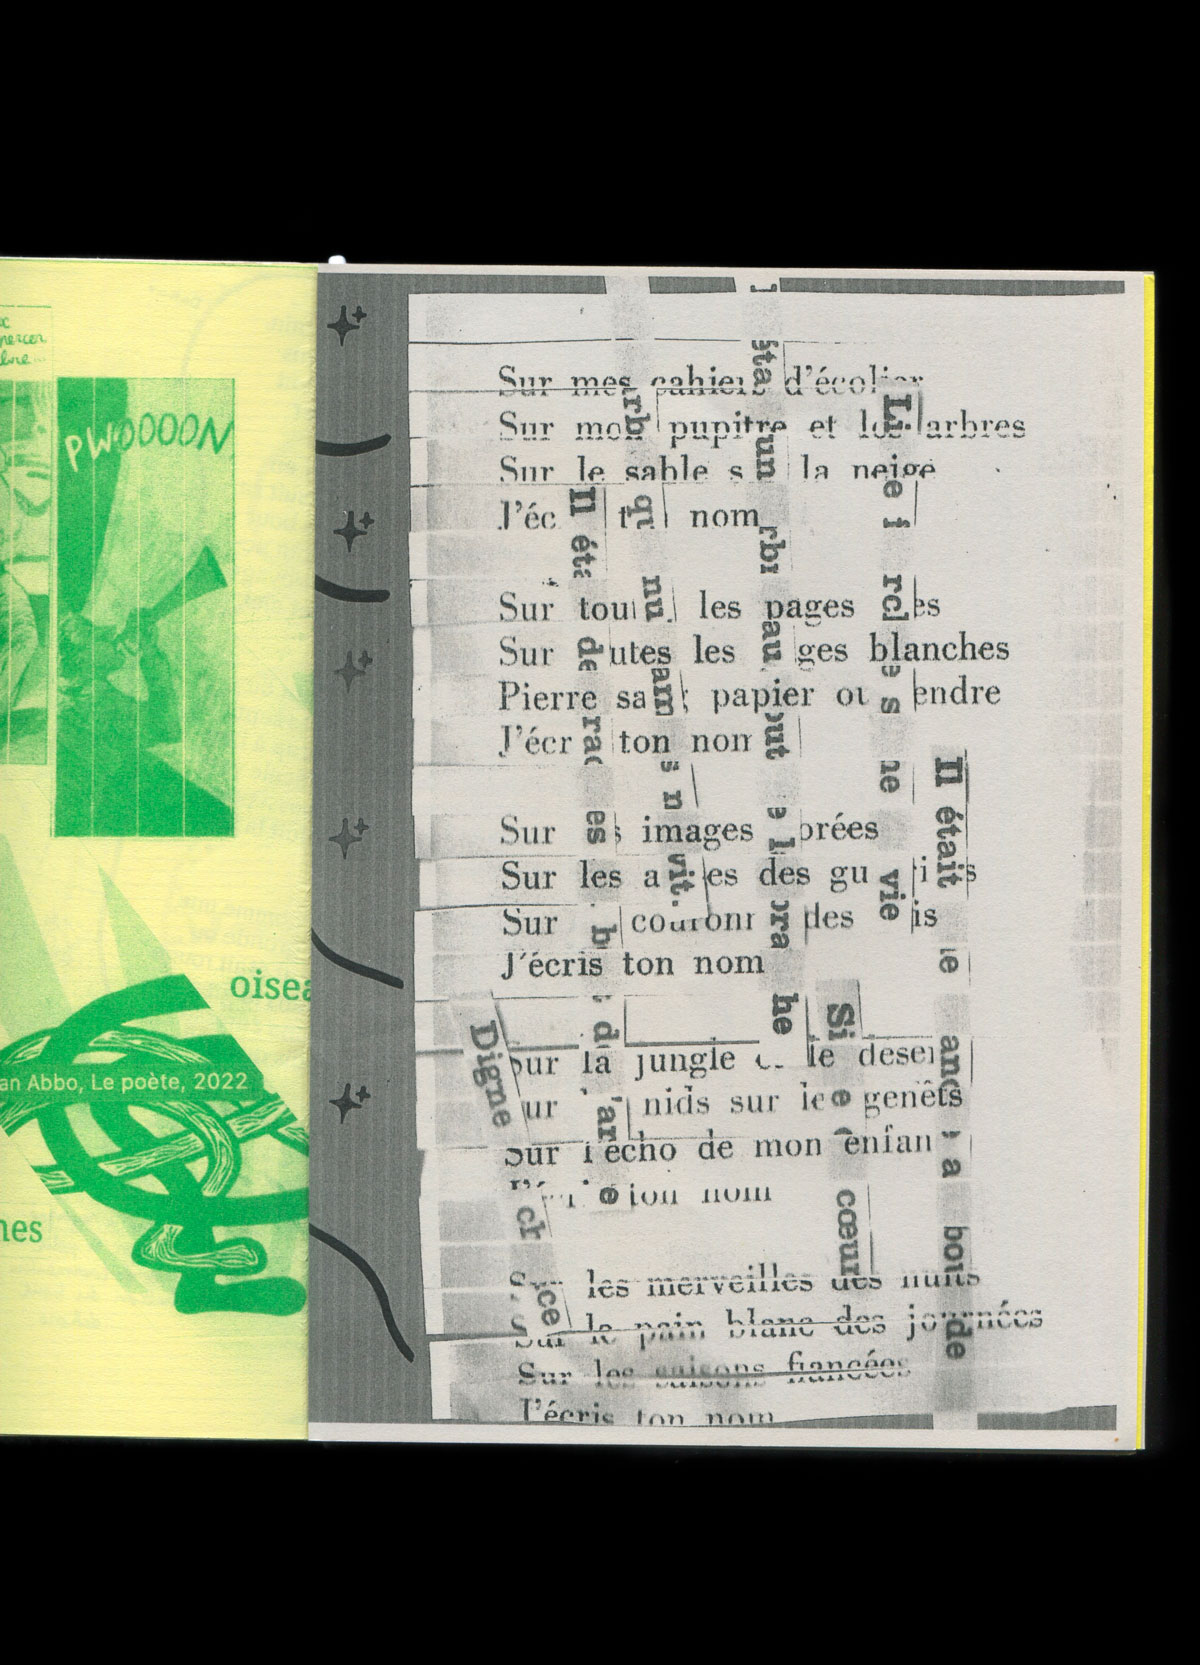 PWOOOON
oisea
an Abbo, Le poète, 2022
nes
Sur mes cahiers d'écolier
Sur mon pupitre et les arbres
Sur le sable s la neige
J'éc t nom
Sur tou les pages es
Sur utes les ges blanches
Pierre sa papier ou endre
J'écr ton nom
Sur s images orées
Sur les a es des gu
Sur couronn des is
J'écris ton nom
Sur la jungle le deser
ur nids sur le genêts
Sur l'écho de mon enfan
ton nom
les merveilles des nuits
Sur le pain blanc des journées
Sur les saisons fiancées
J'écris ton nom
Digne
ch
ce
Il éta
de
rac
es
b
d
l'ar
e
arb
qu
nu
am
s n
vit.
éta
un
rbr
au
out
e l
ora
he
Si
e
cœur
Li
e
rcl
s
ne
vie
Il était
ne
anc
a
bou
de